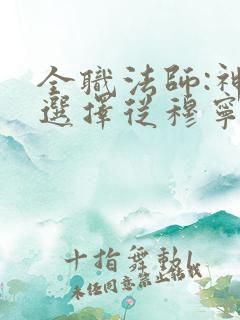 全職法師:神
選擇從穆寧
十指舞動1
未经同意禁止转载